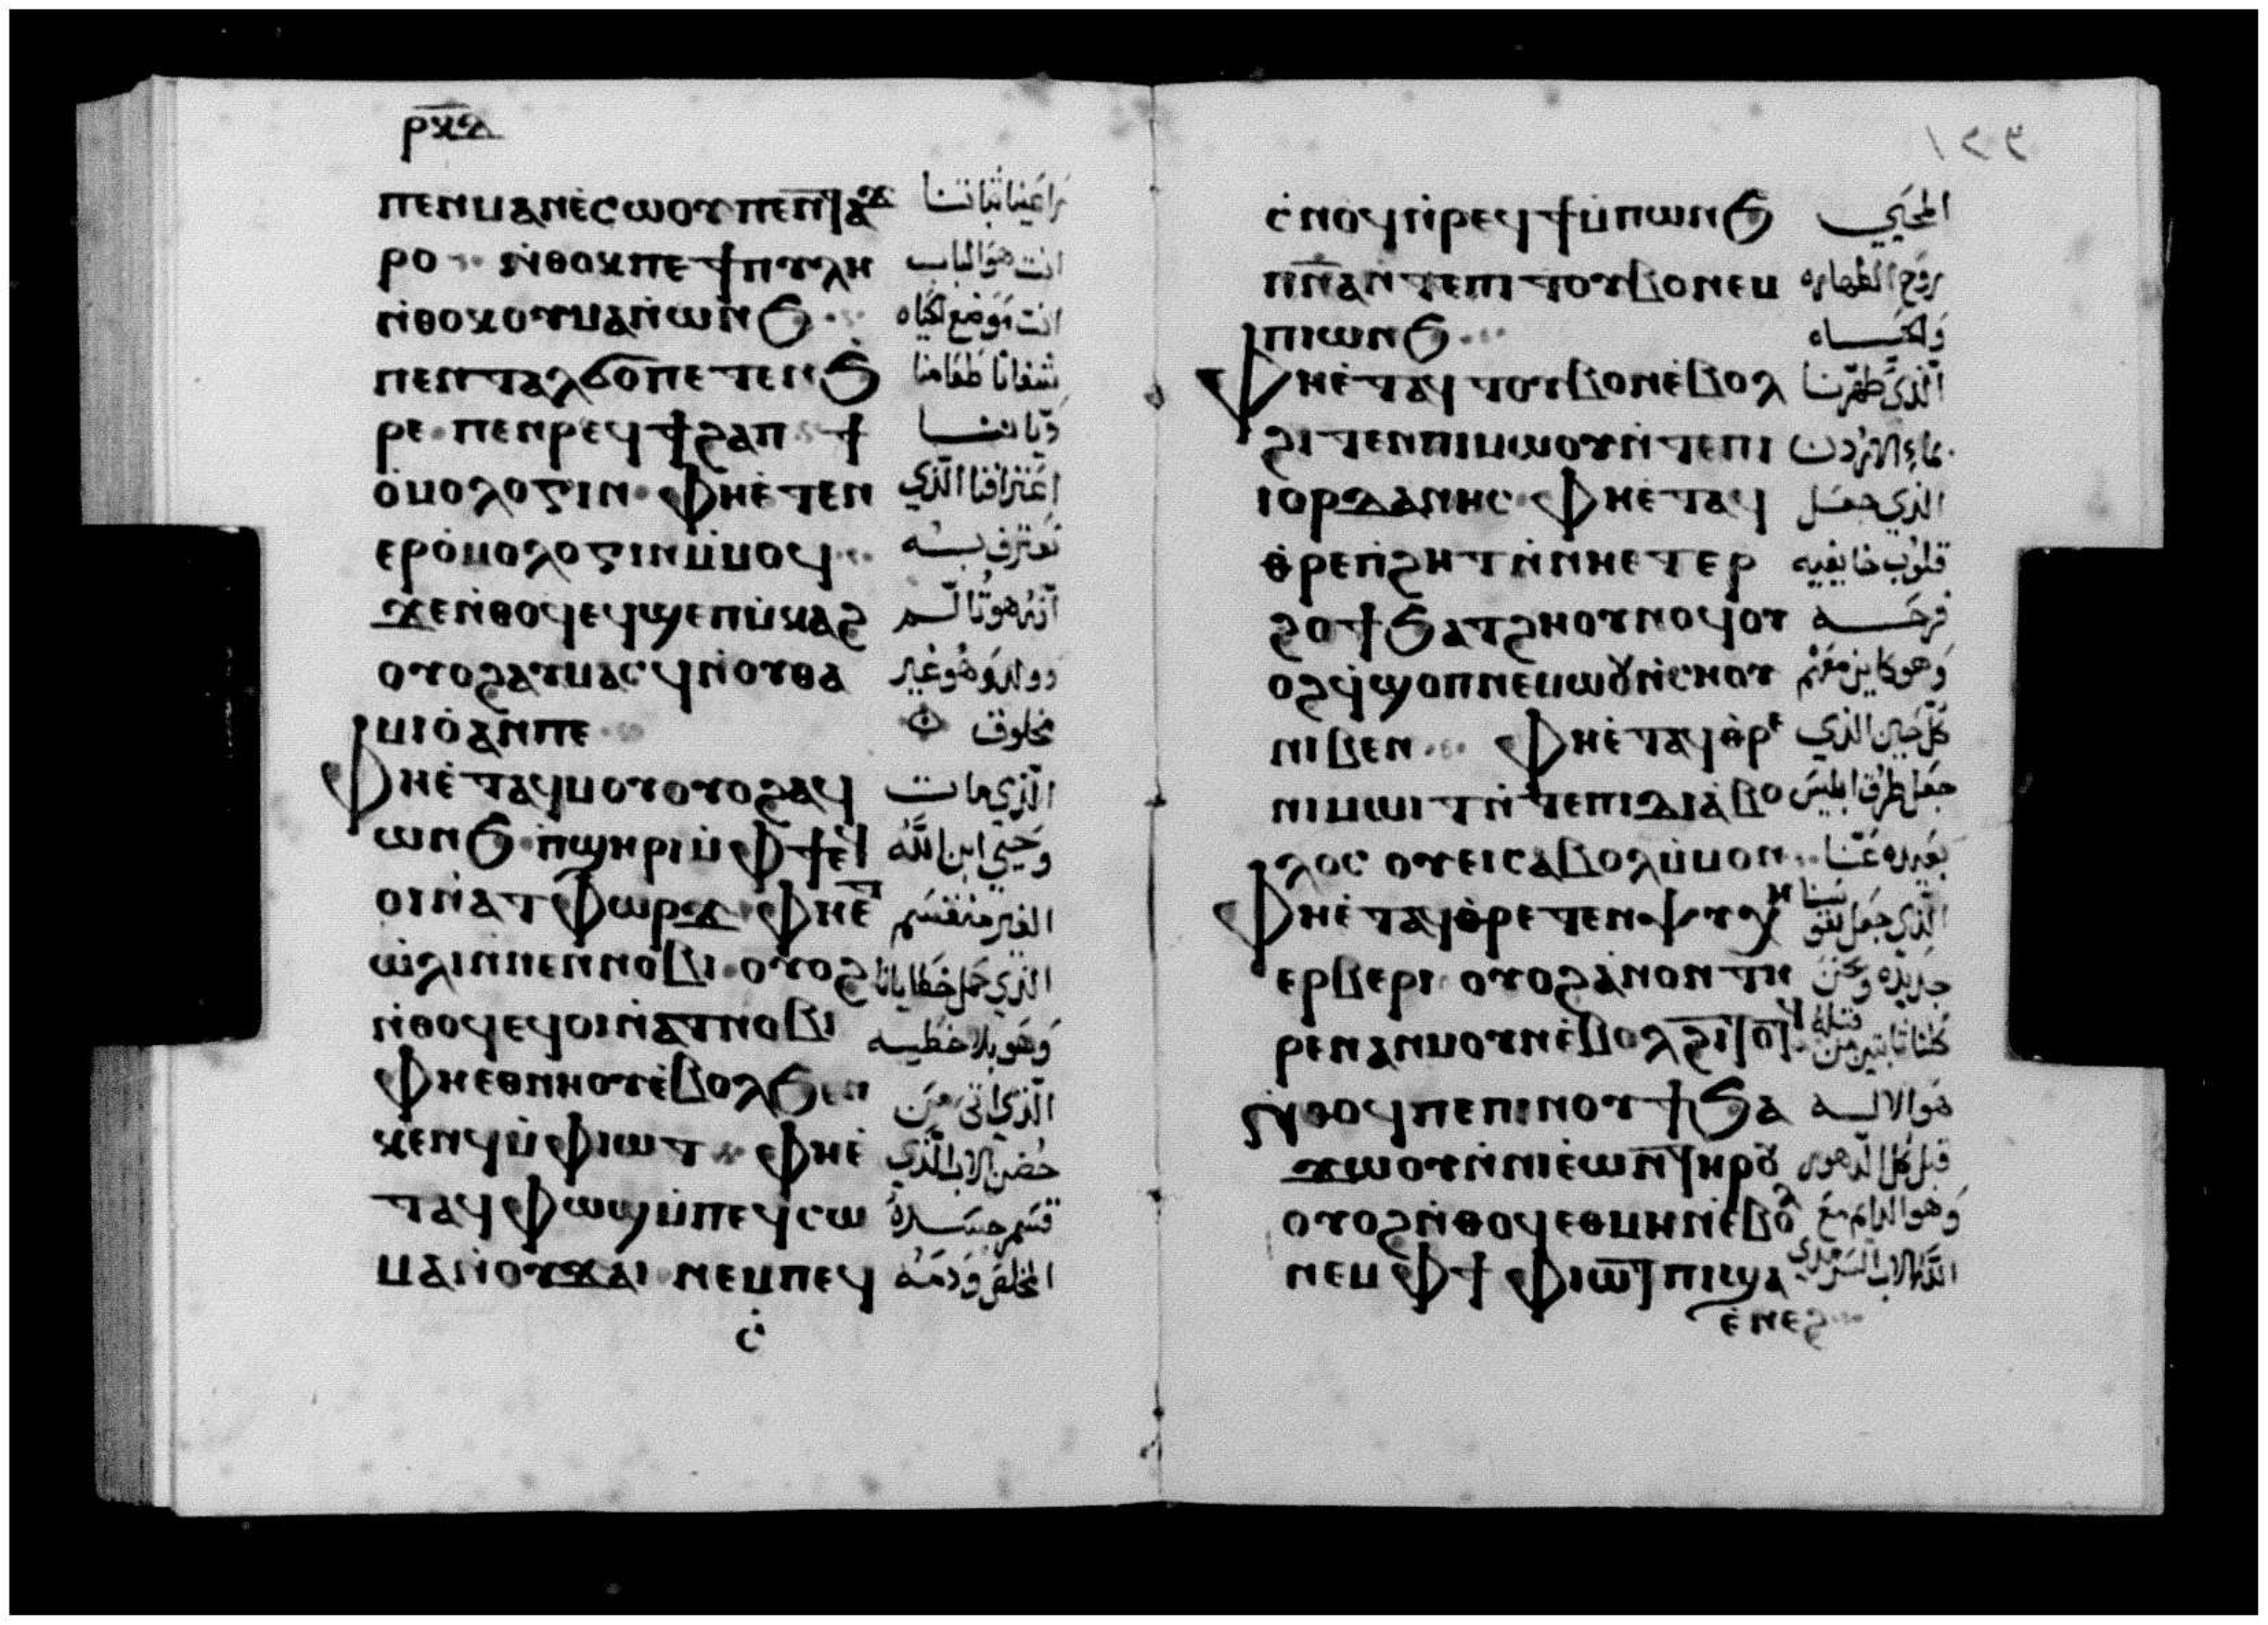 ⲣⲕⲇ
ⲡⲉⲛⲙⲁⲛⲉ̀ⲥⲱⲟⲩ ⲡⲉⲛⲧⲁϫ راعينا ثباتنا
ⲣⲟ ⲛ̀ⲑⲟⲕ ⲡⲉ ϯⲡⲩⲗⲏ انت هو الباب
ⲛ̀ⲑⲟⲕ ⲟⲩⲙⲁⲛ̀ⲱⲛϧ انت موضع الحياه
ⲡⲉⲛⲧⲁⲗϭⲟ ⲡⲉ ⲧⲉⲛϧ̀ شفانا طعامنا
ⲣⲉ ⲡⲉⲛⲣⲉϥϯϩⲁⲡ ϯ دياننا
ⲟ̀ⲙⲟⲗⲟⲅⲓⲛ ⲫⲏⲉ̀ⲧⲉⲛ اعترافنا الذي
ⲉⲣⲟ̀ⲙⲟⲗⲟⲅⲓⲛ ⲙ̀ⲙⲟϥ نعترف به
ϫⲉ ⲛ̀ⲑⲟϥ ⲉϥϣⲉⲡⲙ̀ⲕⲁϩ انه هو تالم
ⲟⲩⲟϩ ⲁⲩⲙⲁⲥϥ ⲛ̀ⲟⲩⲑⲁ وولد وهو غير
ⲙⲓⲟ̀ ⲁⲛ ⲡⲉ مخلوق
ⲫⲏⲉ̀ⲧⲁϥⲙⲟⲩ ⲟⲩⲟϩ ⲁϥ الذي مات
ⲱⲛϧ ⲡ̀ϣⲏⲣⲓ ⲙ̀ⲫϯ وحيي ابن الله
ⲟⲓⲛ̀ⲁⲧⲫⲱⲣϫ ⲫⲏⲉ̀ⲧ الغير منقسم
ⲱ̀ⲗⲓ ⲛ̀ⲛⲉⲛⲛⲟⲃⲓ ⲟⲩⲟϩ الذي حمل خطايانا
ⲛ̀ⲑⲟϥ ⲉϥⲟⲓ ⲛ̀ⲁⲧⲛⲟⲃⲓ وهو بلا خطيه
ⲫⲏⲉⲑⲛⲏⲟⲩ ⲉ̀ⲃⲟⲗϧⲉⲛ الذي اتى من
ⲕⲉⲛϥ ⲙ̀ⲫⲓⲱⲧ ⲫⲏⲉ̀ حضن الاب الذي
ⲧⲁϥⲫⲱϣ ⲙ̀ⲡⲉϥⲥⲱ قسم جسده
ⲙⲁ ⲛ̀ⲟⲩϫⲁⲓ ⲛⲉⲙ ⲡⲉϥ المخلص ودمه
ⲥ̀
١٢٣
ⲥ̀ⲛⲟϥ ⲛ̀ⲣⲉϥϯ ⲙ̀ⲡⲱⲛϧ المحيي
ⲡⲛⲁ ⲛ̀ⲧⲉ ⲡⲓⲧⲟⲩⲃⲟ ⲛⲉⲙ روح الطهاره
ⲡⲓⲱⲛϧ والحياه
ⲫⲏⲉ̀ⲧⲁϥⲧⲟⲩⲃⲟⲛ ⲉ̀ⲃⲟⲗ الذي طهرنا
ϩⲓⲧⲉⲛ ⲡⲓⲙⲱⲟⲩ ⲛ̀ⲧⲉ ⲡⲓ بماء الاردن
ⲓⲟⲣⲇⲁⲛⲏⲥ ⲫⲏⲉ̀ⲧⲁϥ الذي جعل
ⲑ̀ⲣⲉ ⲡ̀ϩⲏⲧ ⲛ̀ⲛⲏⲉⲧⲉⲣ قلوب خايفيه
ϩⲟϯ ϧⲁⲧϩⲏ ⲟⲩⲛⲟϥ ⲟⲩ فرحه
ⲟϩ ϥ̀ϣⲟⲡ ⲛⲉⲙⲱⲟⲩ ⲛ̀ⲥⲏⲟⲩ وهو كاين معهم
ⲛⲓⲃⲉⲛ ⲫⲏⲉ̀ⲧⲁϥⲑ̀ⲣⲉ كل حين الذي
ⲛⲓⲙⲱⲓⲧ ⲛ̀ⲧⲉ ⲡⲓⲇⲓⲁ̀ⲃⲟ جعل طرق ابليس
ⲗⲟⲥ ⲟⲩⲉⲓ ⲥⲁⲃⲟⲗ ⲙ̀ⲙⲟⲛ بعيده عنا
ⲫⲏⲉ̀ⲧⲁϥⲑ̀ⲣⲉ ⲧⲉⲛⲯⲩⲭⲏ الذي جعل نفوسنا
ⲉⲣⲃⲉⲣⲓ ⲟⲩⲟϩ ⲁ̀ⲛⲟⲛ ⲧⲏ جديده ونحن
ⲣⲉⲛ ⲁⲛⲙⲟⲩⲛ ⲉ̀ⲃⲟⲗ ϩⲓⲧⲟⲧϥ كلنا ثابتين من قبله
ⲛ̀ⲑⲟϥ ⲡⲉ ⲡⲓⲛⲟⲩϯ ϧⲁ هو الاله
ϫⲱⲟⲩ ⲛ̀ⲛⲓⲉ̀ⲱⲛ ⲧⲏⲣⲟⲩ قبل كل الدهور
ⲟⲩⲟϩ ⲛ̀ⲑⲟϥ ⲉⲑⲙⲏⲛ ⲉ̀ⲃⲟⲗ وهو الدايم مع
ⲛⲉⲙ ⲫϯ ⲫⲓⲱⲧ ⲡⲓϣⲁ الله الاب السرمدي
ⲉ̀ⲛⲉϩ